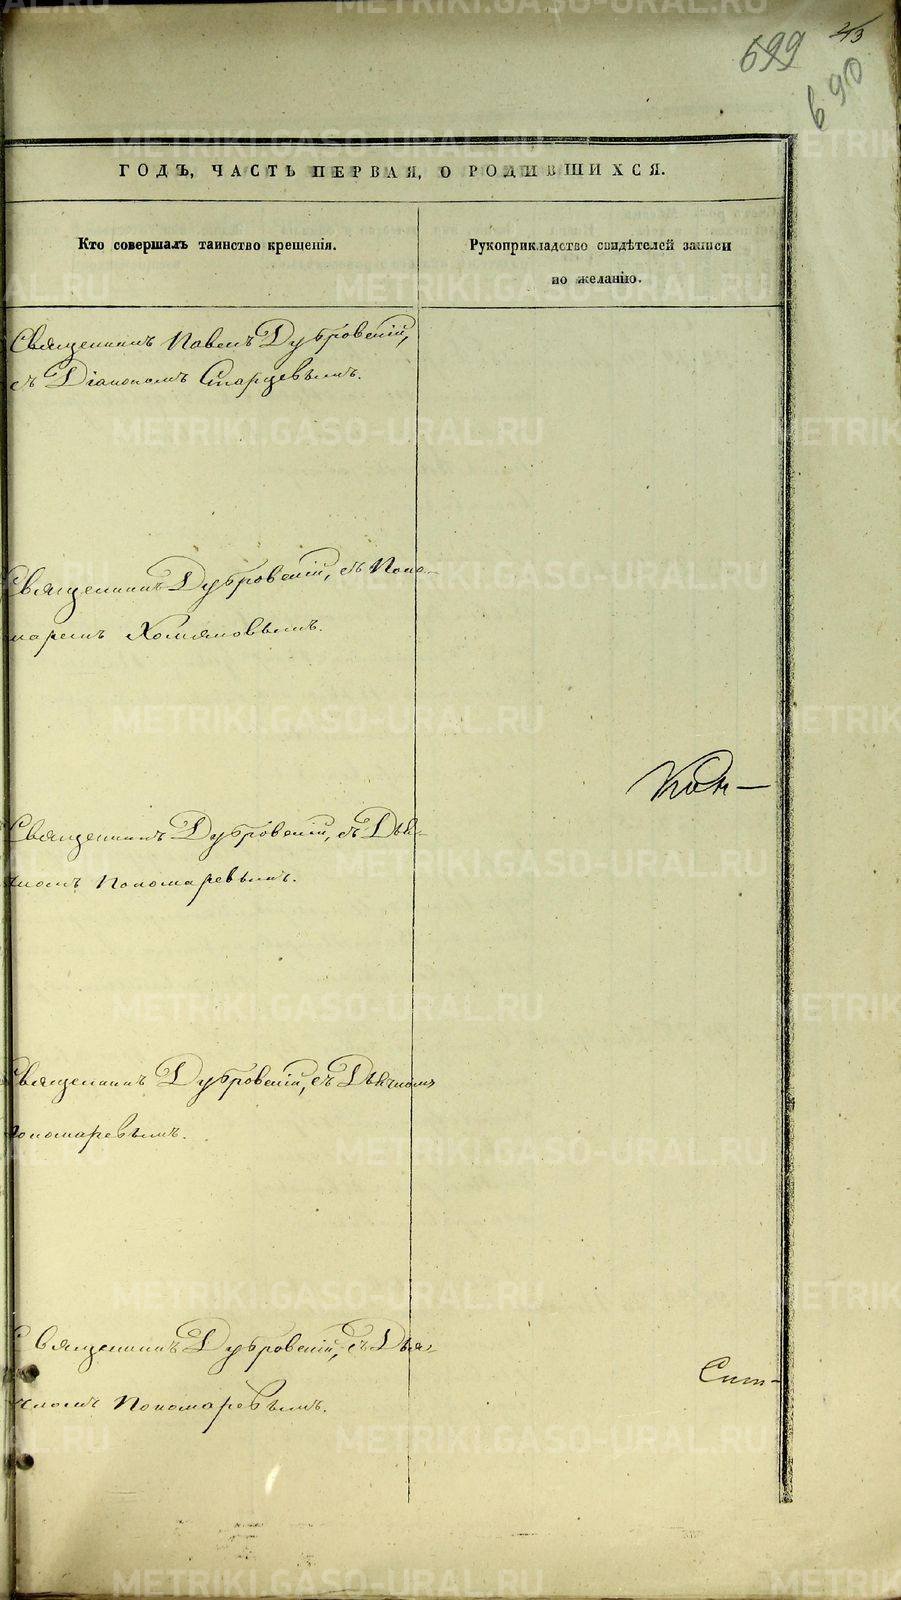 699
690
ГОДЪ, ЧАСТЬ ПЕРВАЯ, О РОДИВШИХСЯ.
Кто совершалъ таинство крещенія.
Рукоприкладство свидѣтелей записи
по желанію.
Священникъ Павелъ Дубровскій,
съ Діакономъ Старцевымъ.
Священникъ Дубровскій, съ Поно-
маремъ Хомяковымъ.
Священникъ Дубровскій, съ Дья-
чкомъ Пономаревымъ.
Священникъ Дубровскій, съ Дьячкомъ
Пономаревымъ.
Священникъ Дубровскій, съ Дья-
чкомъ Пономаревымъ.
METRIKI.GASO-URAL.RU